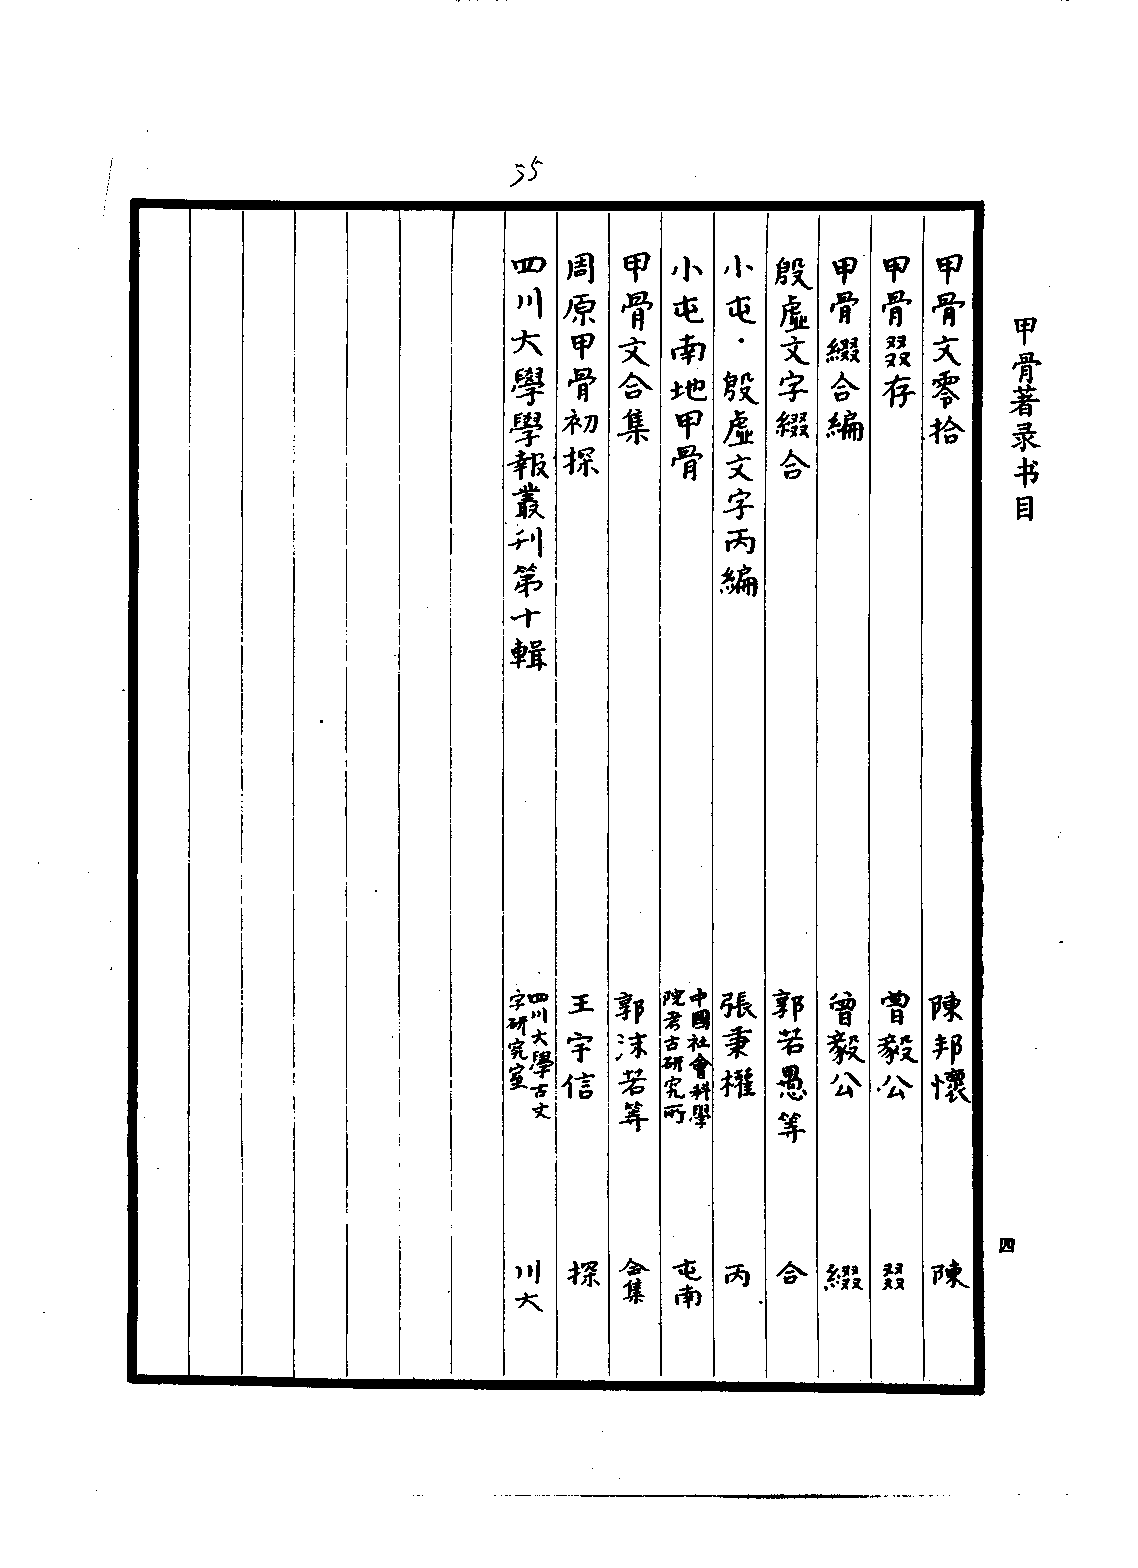 35
甲骨著录书目
四
甲骨文零拾 陳邦懷 陳
甲骨叕存 曾毅公 叕
甲骨綴合編 曾毅公 綴
殷虛文字綴合 郭若愚等 合
小屯·殷虛文字丙編 張秉權 丙
小屯南地甲骨 中國社會科學院考古研究所 屯南
甲骨文合集 郭沫若等 合集
周原甲骨初探 王宇信 探
四川大學學報叢刊第十輯 四川大學古文字研究室 川大